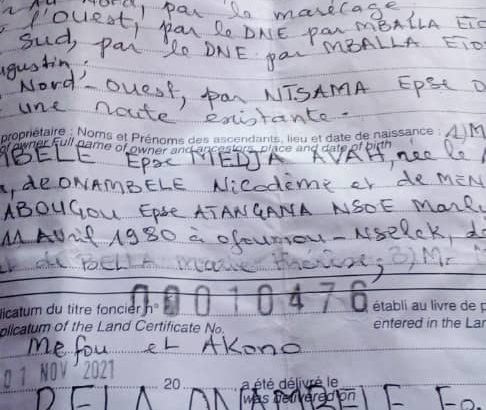 Nord, par le marécage.
l'ouest, par le DNE par MBALLA ETO
Sud, par le DNE par MBALLA ETO
ugustin.
Nord-Ouest, par NTSAMA Epse O
une route existante.
propriétaire : Noms et Prénoms des ascendants, lieu et date de naissance : 1) M
of owner Full name of owner and ancestors, place and date of birth
ABELE Epse MEDJA AVAH, née le
, de ONAMBELE Nicodème et de MEN
ABOUGOU Epse ATANGANA NSOE Marly
11 Avril 1980 à
de BELLA Marie Thérèse, 3) Mr
licatum du titre foncier n° 00010476 établi au livre de p
plicatum of the Land Certificate No. entered in the Lan
Mefou et Akono
01 NOV 2021
20 a été délivré le
was delivered on